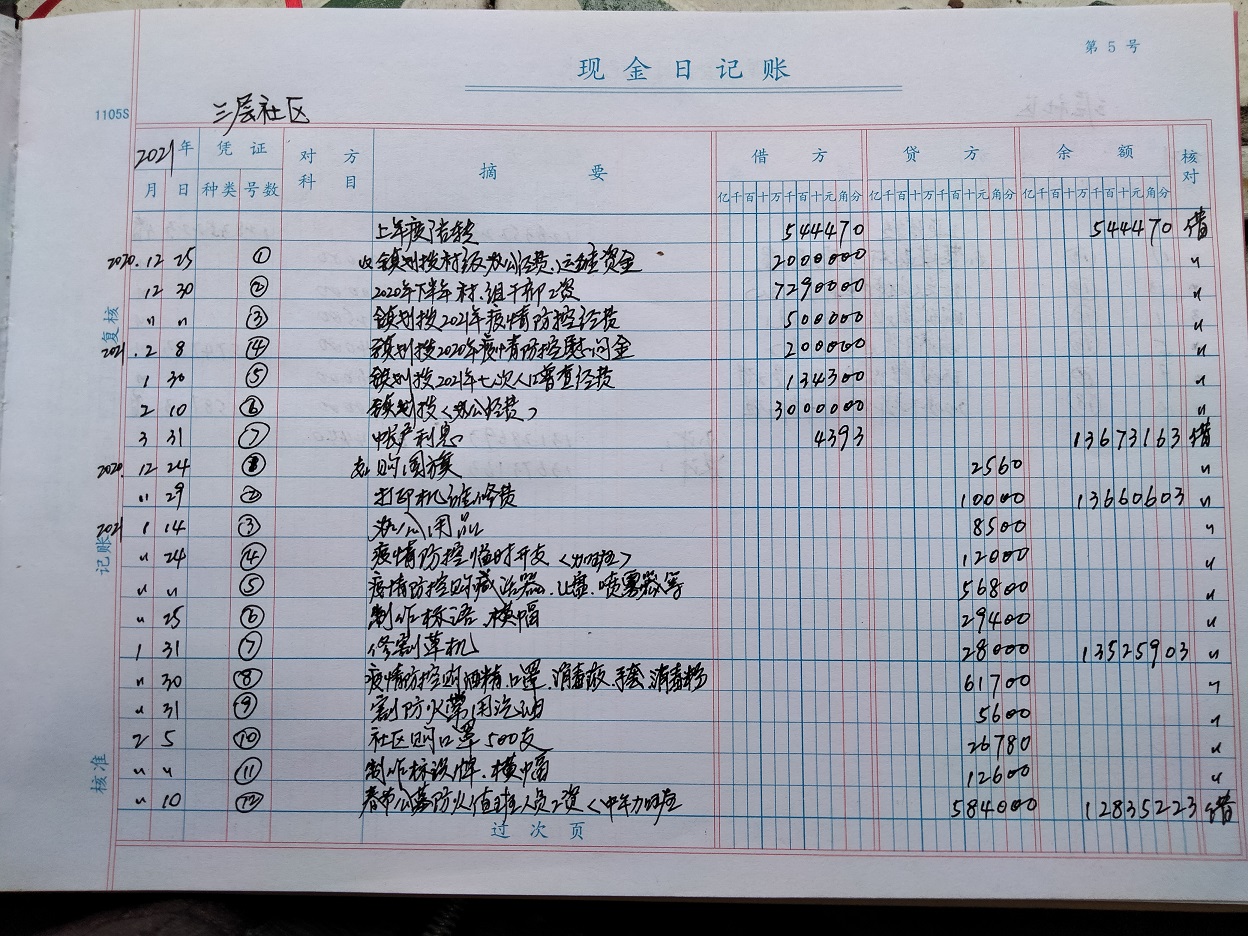 第 5 号
现金日记账
1105S
三层社区
2021年 凭证 对方科目 摘要 借方 贷方 余额 核对
月 日 种类 号数 亿千百十万千百十元角分 亿千百十万千百十元角分 亿千百十万千百十元角分
上年度结转 544470 544470 借
2020. 12 25 ① 收 镇划拨村级办公经费、运转资金 2000000 〃
12 30 ② 2020年下半年村、组干部工资 7290000 〃
〃 〃 ③ 镇划拨2021年疫情防控经费 500000 〃
2021. 2 8 ④ 镇划拨2020年疫情防控慰问金 200000 〃
1 30 ⑤ 镇划拨2021年七次人口普查经费 134300 〃
2 10 ⑥ 镇划拨〈办公经费〉 3000000 〃
3 31 ⑦ 帐户利息 4393 13673163 借
2020. 12 24 ① 支 购国旗 2560 〃
〃 29 ② 打印机维修费 10000 13660603 〃
2021 1 14 ③ 办公用品 8500 〃
〃 24 ④ 疫情防控临时开支〈加班〉 12000 〃
〃 〃 ⑤ 疫情防控购 喷雾器等 56800 〃
〃 25 ⑥ 制作标语、横幅 29400 〃
1 31 ⑦ 修割草机 28000 13525903 〃
〃 30 ⑧ 疫情防控购酒精、口罩、消毒液、手套、消毒粉 61700 〃
〃 31 ⑨ 割防火带用汽油 5600 〃
2 5 ⑩ 社区购口罩500支 26780 〃
〃 〃 ⑪ 制作标识牌、横幅 12600 〃
〃 10 ⑫ 春节公墓防火值班人员工资〈中午加班 584000 12835223 借
过次页
复核
记账
核准